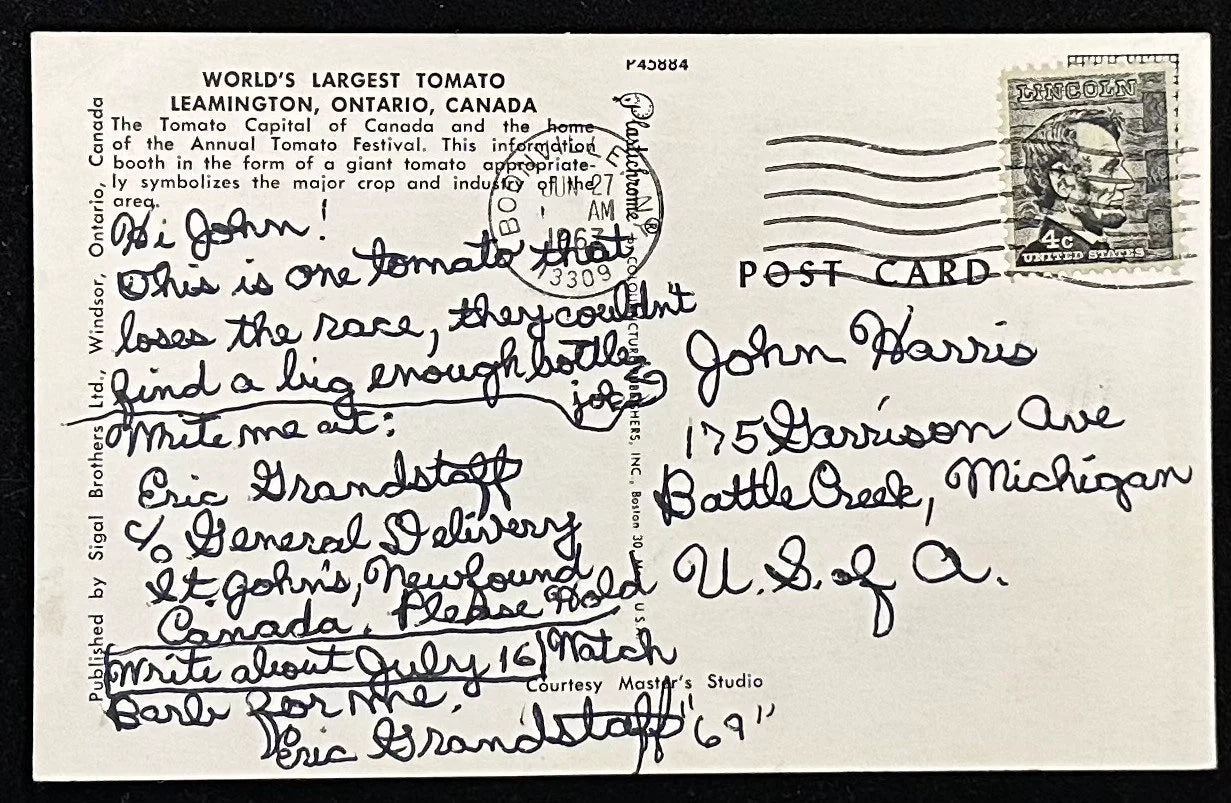 WORLD'S LARGEST TOMATO
LEAMINGTON, ONTARIO, CANADA
The Tomato Capital of Canada and the home
of the Annual Tomato Festival. This information
booth in the form of a giant tomato appropriate-
ly symbolizes the major crop and industry of the
area.
Published by Sigal Brothers Ltd., Windsor, Ontario, Canada
Hi John!
This is one tomato that
loses the race, they couldn't
find a big enough bottle
joke
Write me at:
Eric Grandstaff
c/o General Delivery
St John's, Newfound
Canada. Please Hold
Write about July 16 Watch
Barb for me.
Eric Grandstaff "69"
Courtesy Master's Studio
P45884
Plastichrome ®
INC., Boston 30, U.S.A.
JUN 27
AM
3309
LINCOLN
4c
UNITED STATES
POST CARD
John Harris
175 Garrison Ave
Battle Creek, Michigan
U.S. of A.